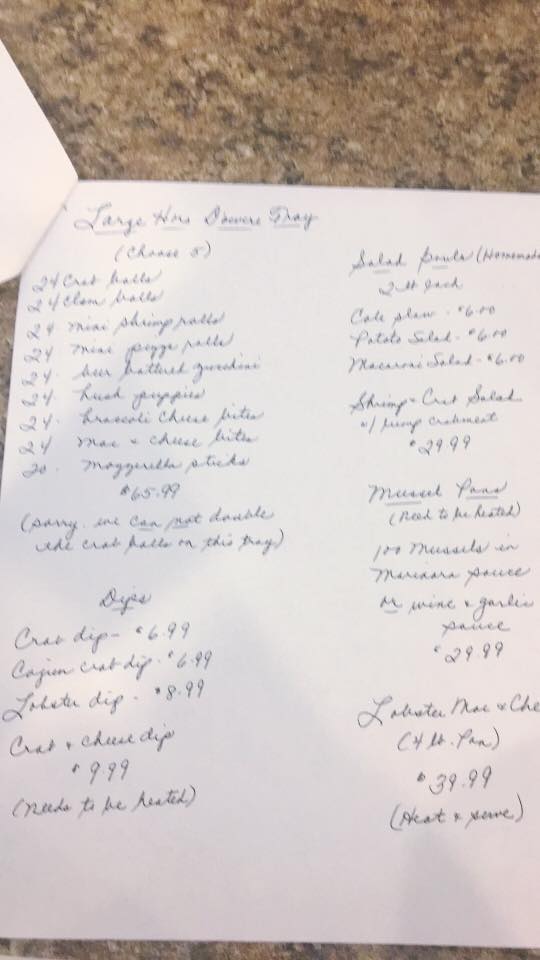 Large Hors Dowere Tray
(Choose 5)
24 Crab balls
24 Clam balls
24. mini shrimp rolls
24 mini pizza rolls
24. beer battered zucchini
24. hush puppies
24. broccoli cheese bites
24 Mac & cheese bites
20. mozzerella sticks
$65.99
(Sorry we can not double
the crab balls on this tray)
Dips
Crab dip - $6.99
Cajun crab dip - $6.99
Lobster dip - $8.99
Crab & cheese dip
$9.99
(Needs to be heated)
Salad Bowls (Homemade
2 lb each
Cole slaw - $6.00
Potato Salad - $6.00
Macaroni Salad - $6.00
Shrimp & Crab Salad
w/ lump crabmeat
$29.99
Mussel Pans
(Need to be heated)
100 Mussels in
Marinara sauce
or wine & garlic
sauce
$29.99
Lobster Mac & Che
(4 lb. Pan)
$39.99
(Heat & serve)